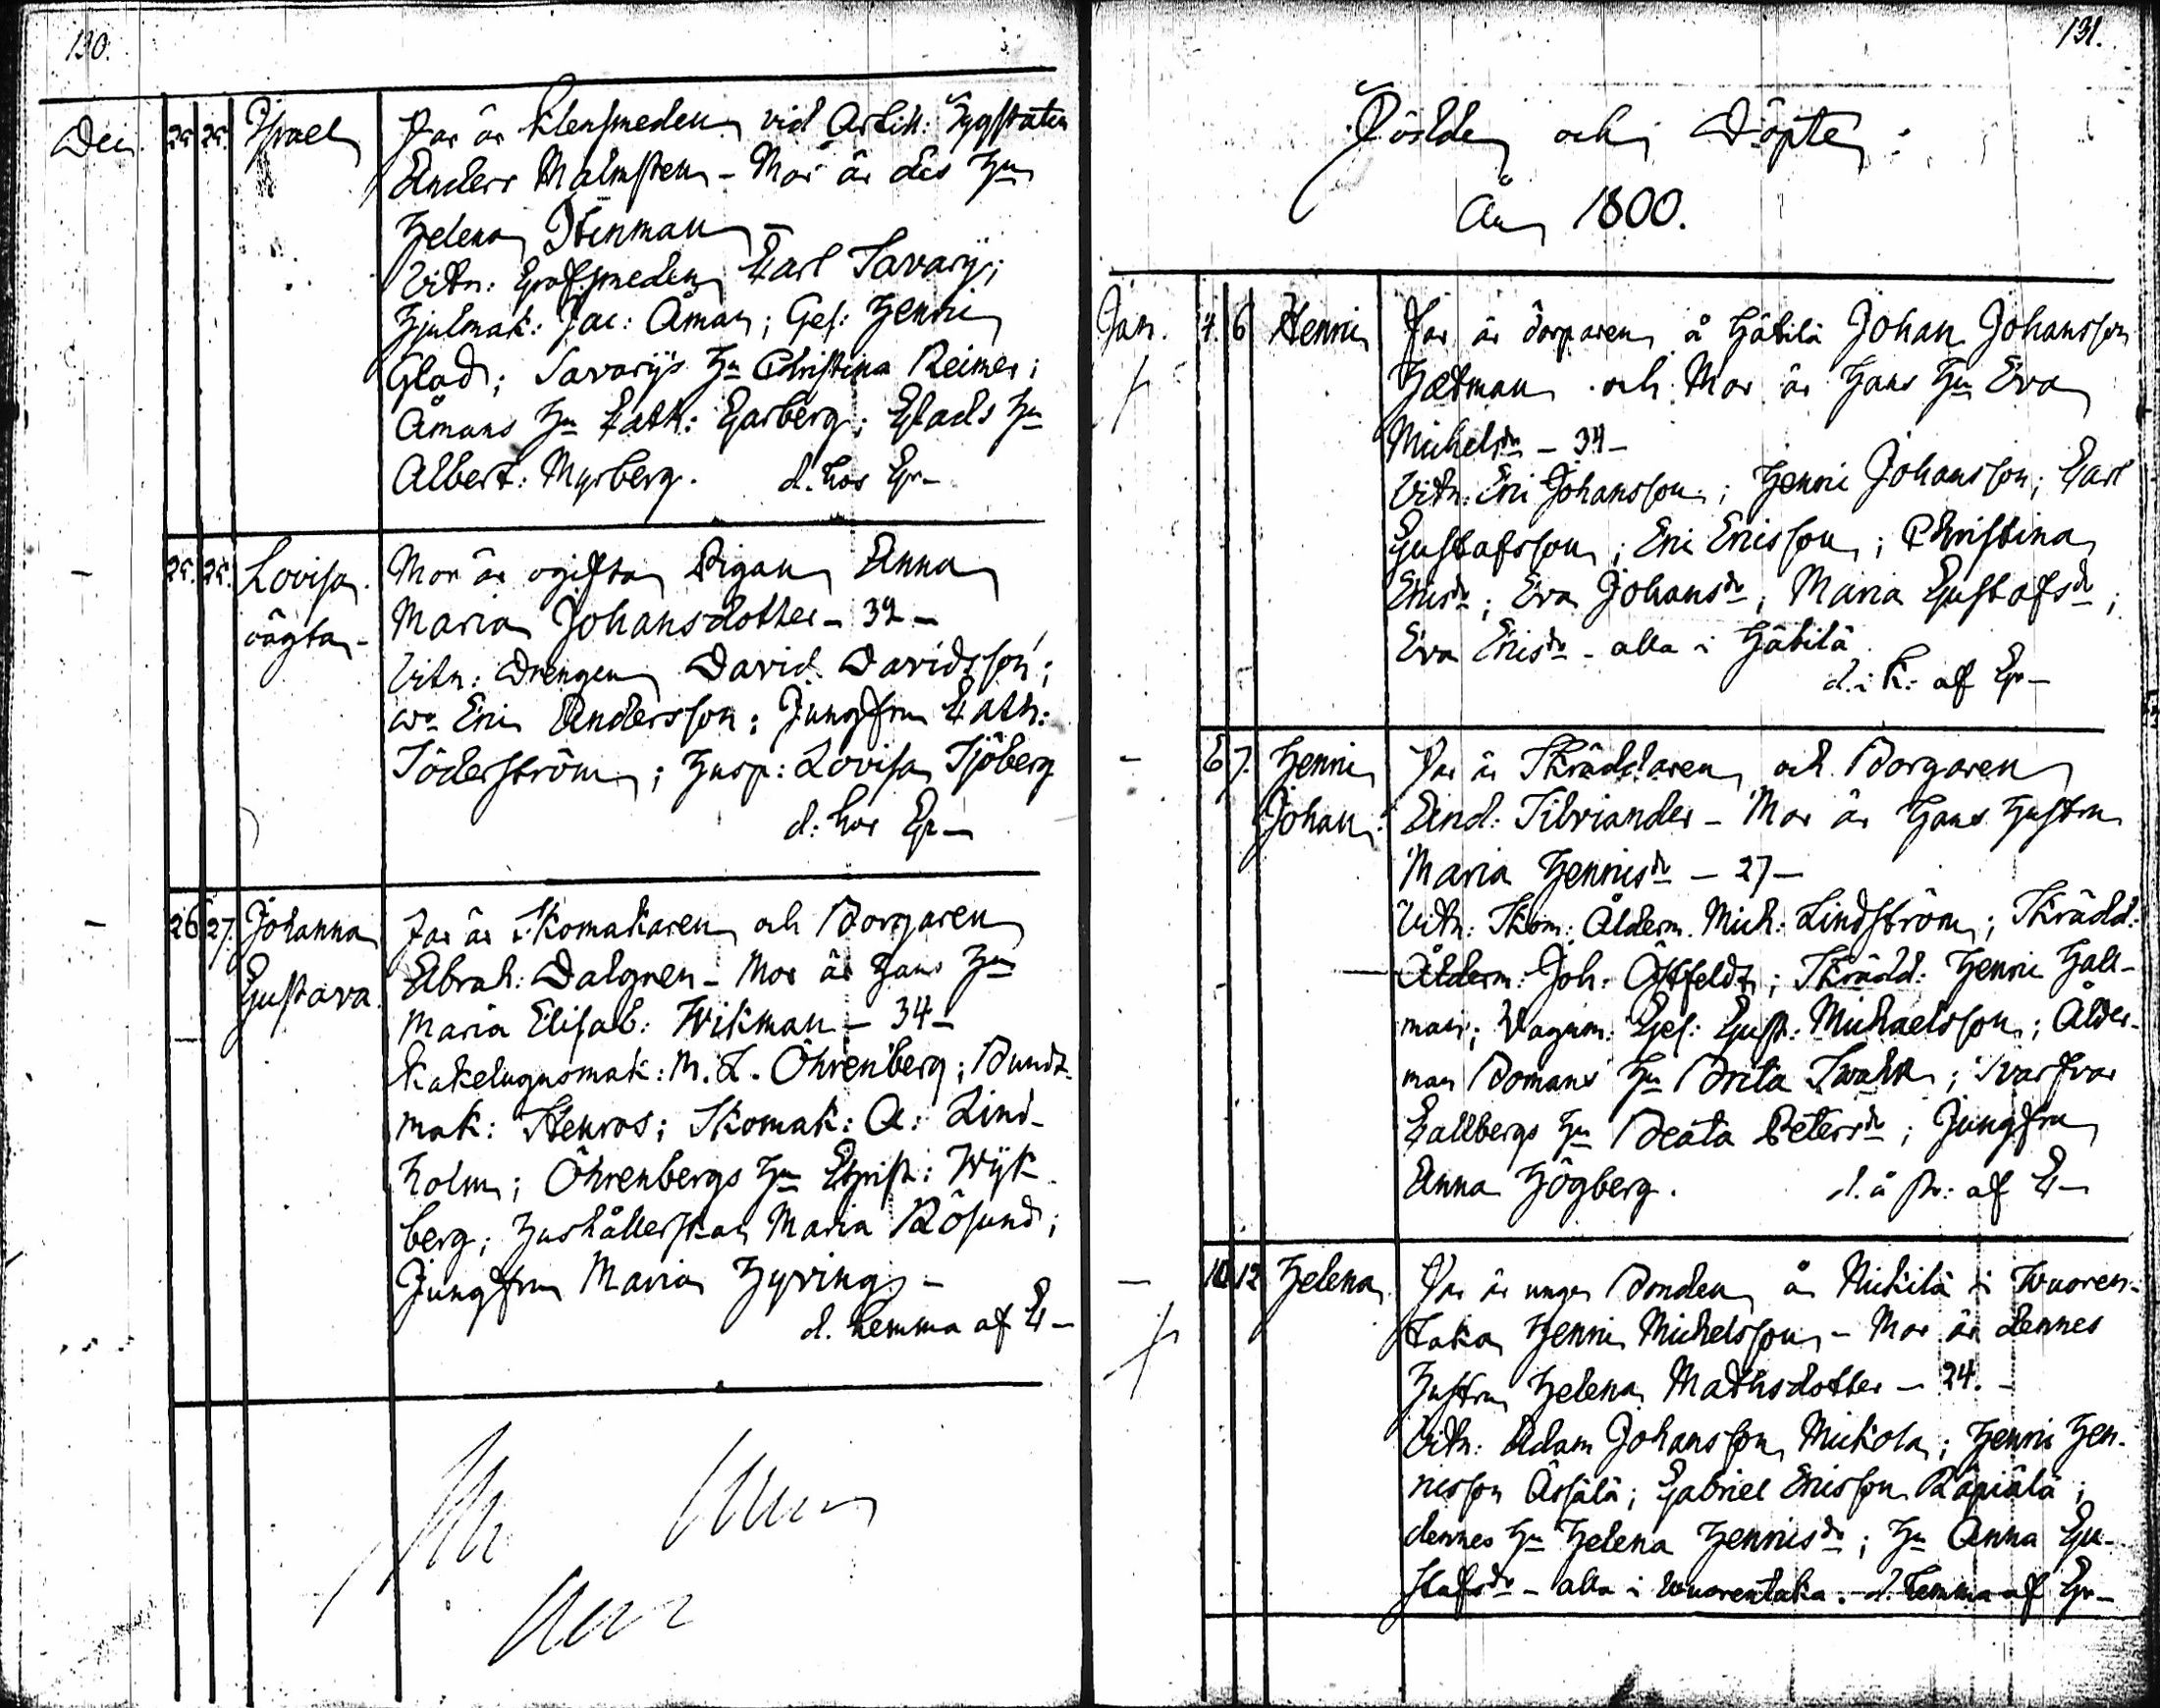 130.
Dec. 25 25. Israel Far är Klensmeden vid Artill: Tygstaten
Anders Malmsten - Mor är des Hu
Helena Stenman -
Vitn: Grofsmeden Carl Savary;
Hjulmak: Jac: Åman; Ges: Henric
Glad; Savarys Hu Christina Reimer;
Åmans Hu Cath: Garberg; Glads Hu
Albert: Myrberg. d. hos Gr-
- 25. 25. Lovisa. Mor är ogifta Pigan Anna
oägta - Maria Johansdotter - 32 -
Vitn: Drengen David Davidsson;
Eric Andersson; Jungfru Cath:
Söderström; Husp: Lovisa Sjöberg
d: hos Gr-
- 26 27. Johanna Far är Skomakaren och Borgaren
Gustava. Abrah: Dalgren - Mor är Hans Hu
Maria Elisab: Wikman - 34 -
Kakelugnsmak: M. L. Öhrenberg; Bundt-
mak: Stenros; Skomak: A: Lind-
holm; Öhrenbergs Hu Christ: Wyk
berg; Hushållerskan Maria Rösund;
Jungfru Maria Hyving -
d. hemma af
131.
Födde och Döpte:
År 1800.
Jan. 4. 6 Henric Far är Torparen å Hätilä Johan Johansson
Hætman och Mor är Hans Hu Eva
Michelsdr - 34 -
Vitn: Eric Johansson; Henric Johansson; Carl
Gustafsson; Eric Ericsson; Christina
Ericsdr; Eva Johansdr; Maria Gustafsdr;
Eva Ericsdr - alla i Hätilä
d. i K: af Gr-
- 6 7. Henric Far är Skräddaren och Borgaren
Johan. And: Silviander - Mor är Hans Hustru
Maria Henricsdr - 27 -
Vitn: Skom: Ålderm. Mich: Lindström; Skrädd:
Ålderm: Joh: Östfeldt; Skrädd: Henric Hall-
man; Vagnm: Ges: Gust: Michaelsson; Ålder-
man Bomans Hu Brita Swahn; Svarfvar
Callbergs Hu Beata Petersdr; Jungfru
Anna Högberg. d. å st: af
- 12 Helena Far är unga Bonden å Mickilä i Wuoren-
taka Henric Michelsson - Mor är dennes
Hustru Helena Mathsdotter - 24. -
Vitn: Adam Johansson Mickola; Henric Hen-
ricsson Äijälä; Gabriel Ericsson Räpiälä;
dennes Hu Helena Henricsdr; Hu Anna Gu-
stafsdr - alla i Wuorentaka. - d. hemma af Gr-